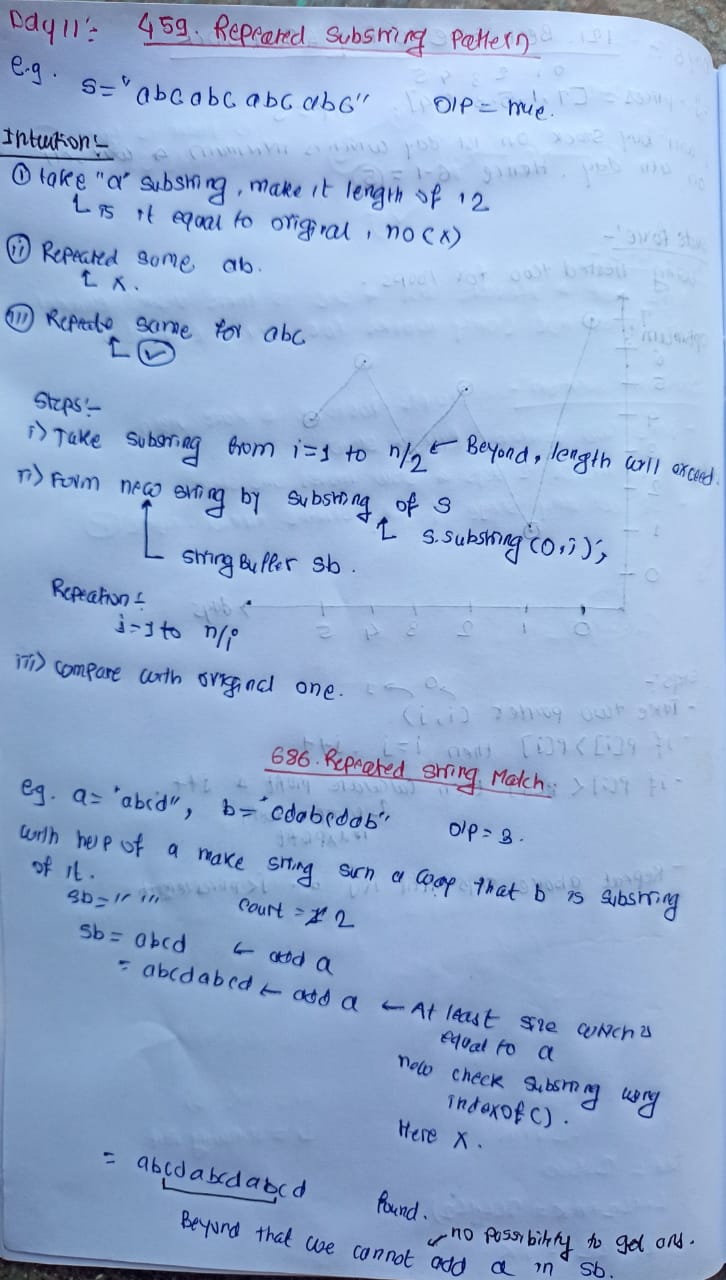 Day 11:- 459. Repeated Substring Pattern
e.g. s="abcabcabcabc" O/P = true.
Intuition:-
① take "a" substring, make it length of 12
is it equal to original, no (x)
ii) Repeated same ab.
x.
iii) Repeate same for abc
Steps:-
i) Take substring from i=1 to n/2 ← Beyond, length will exceed.
ii) Form new string by substring of s
s.substring(0,i);
String Buffer sb.
Repeation:-
j=1 to n/i
iii) compare with original one.
686. Repeated string Match
eg. a= "abcd", b= "cdabcdab" O/P = 3.
with help of a make string such a loop that b is substring
of it.
sb= " " count = 2
sb = abcd ← add a
= abcdabcd ← add a ← At least size which is
equal to a
now check substring using
indexOf().
Here x.
= abcdabcdabcd found.
no possibility to get ans.
Beyond that we cannot add a in sb.